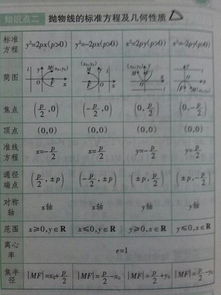 知识点二 抛物线的标准方程及几何性质
标准方程 y²=2px(p>0) y²=-2px(p>0) x²=2py(p>0) x²=-2py(p>0)
简图
焦点 (p/2,0) (-p/2,0) (0,p/2) (0,-p/2)
顶点 (0,0) (0,0) (0,0) (0,0)
准线方程 x=-p/2 x=p/2 y=-p/2 y=p/2
通径端点 (p/2,±p) (-p/2,±p) (±p,p/2) (±p,-p/2)
对称轴 x轴 x轴 y轴 y轴
范围 x≥0,y∈R x≤0,y∈R y≥0,x∈R y≤0,x∈R
离心率 e=1
焦半径 |MF|=x₀+p/2 |MF|=p/2-x₀ |MF|=p/2+y₀ |MF|=p/2-y₀